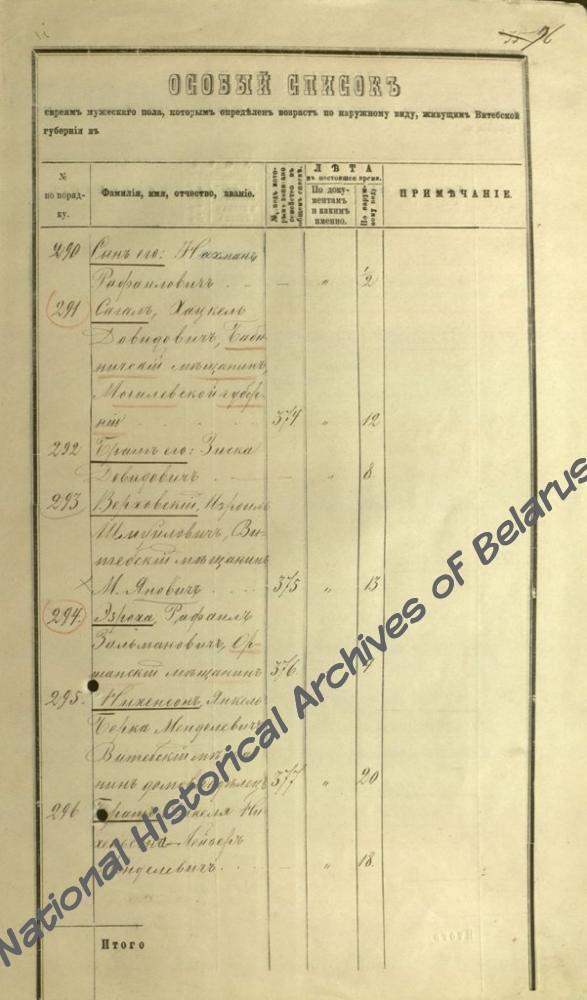 96
ОСОБЫЙ СПИСОКЪ
евреямъ мужескаго пола, которымъ опредѣленъ возрастъ по наружному виду, живущимъ Витебской
губерніи въ
№
по порядку.
Фамилія, имя, отчество, званіе.
№, подъ которымъ
общемъ спискѣ.
ЛѢТА
въ настоящее время.
По документамъ
и какимъ
именно.
По наружному виду.
ПРИМѢЧАНІЕ.
290 Сынъ его: Нахманъ
Рафаиловичъ . . — „ 1/2
291 Сагалъ, Хацкель
Довидовичъ, Баби-
ничскій мѣщанинъ,
Могилевской губер-
ніи . . . . 374 „ 12
292 Братъ его: Зиска
Довидовичъ . — — „ 8.
293 Верховскій, Израиль
Шмуйловичъ, Ви-
тебскій мѣщанинъ
М. Яновичъ . . 375 „ 13
294. Эзроха, Рафаилъ
Залмановичъ, Ор-
шанскій мѣщанинъ 376.
295. Нихенсонъ, Янкель
Берка Менделевичъ
Витебскій
домовладѣлецъ 377 „ 20
296 Братъ Ни-
Лейзеръ
Менделевичъ . . — „ 18.
Итого
National Historical Archives of Belarus